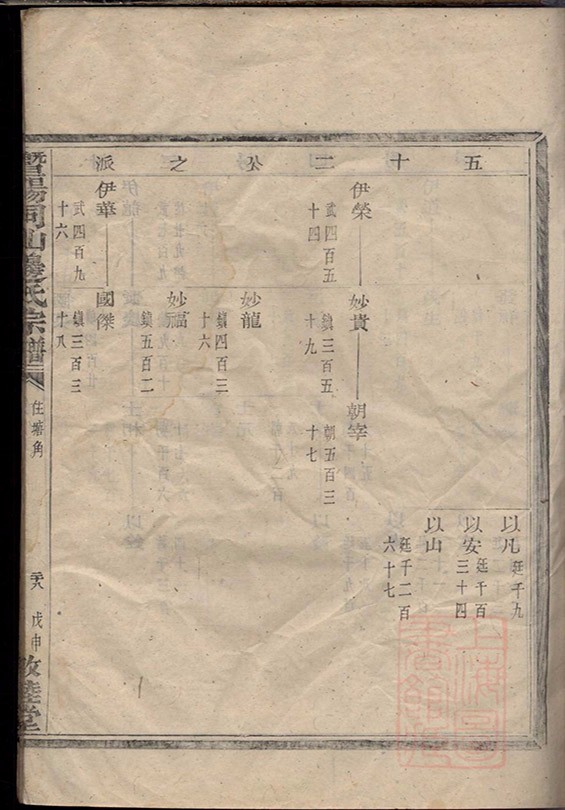 五十二公之派
以凡 廷千九
以安 廷千百
三十四
以山 廷千二百
六十七
伊榮 武四百五
十四
妙貴 鎮三百五
十九
朝宰 朝五百三
十七
妙龍 鎮四百三
十六
妙福 鎮五百二
伊華 武四百九
十六
國傑 鎮三百三
十八
暨陽同山邊氏宗譜
住塘角
戊申
敦睦堂
上海圖
書館藏